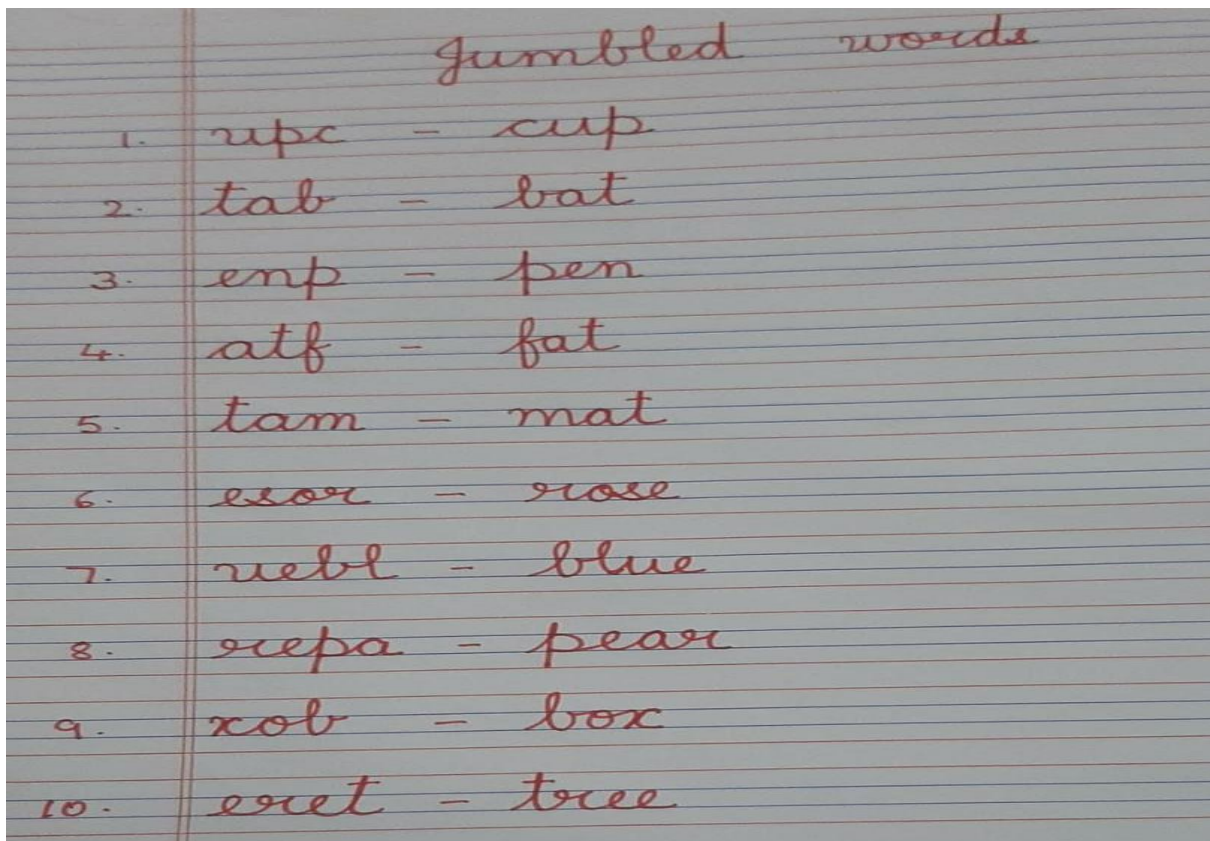 Jumbled words
1. upc - cup
2. tab - bat
3. enp - pen
4. atf - fat
5. tam - mat
6. esor - rose
7. uebl - blue
8. repa - pear
9. xob - box
10. eret - tree